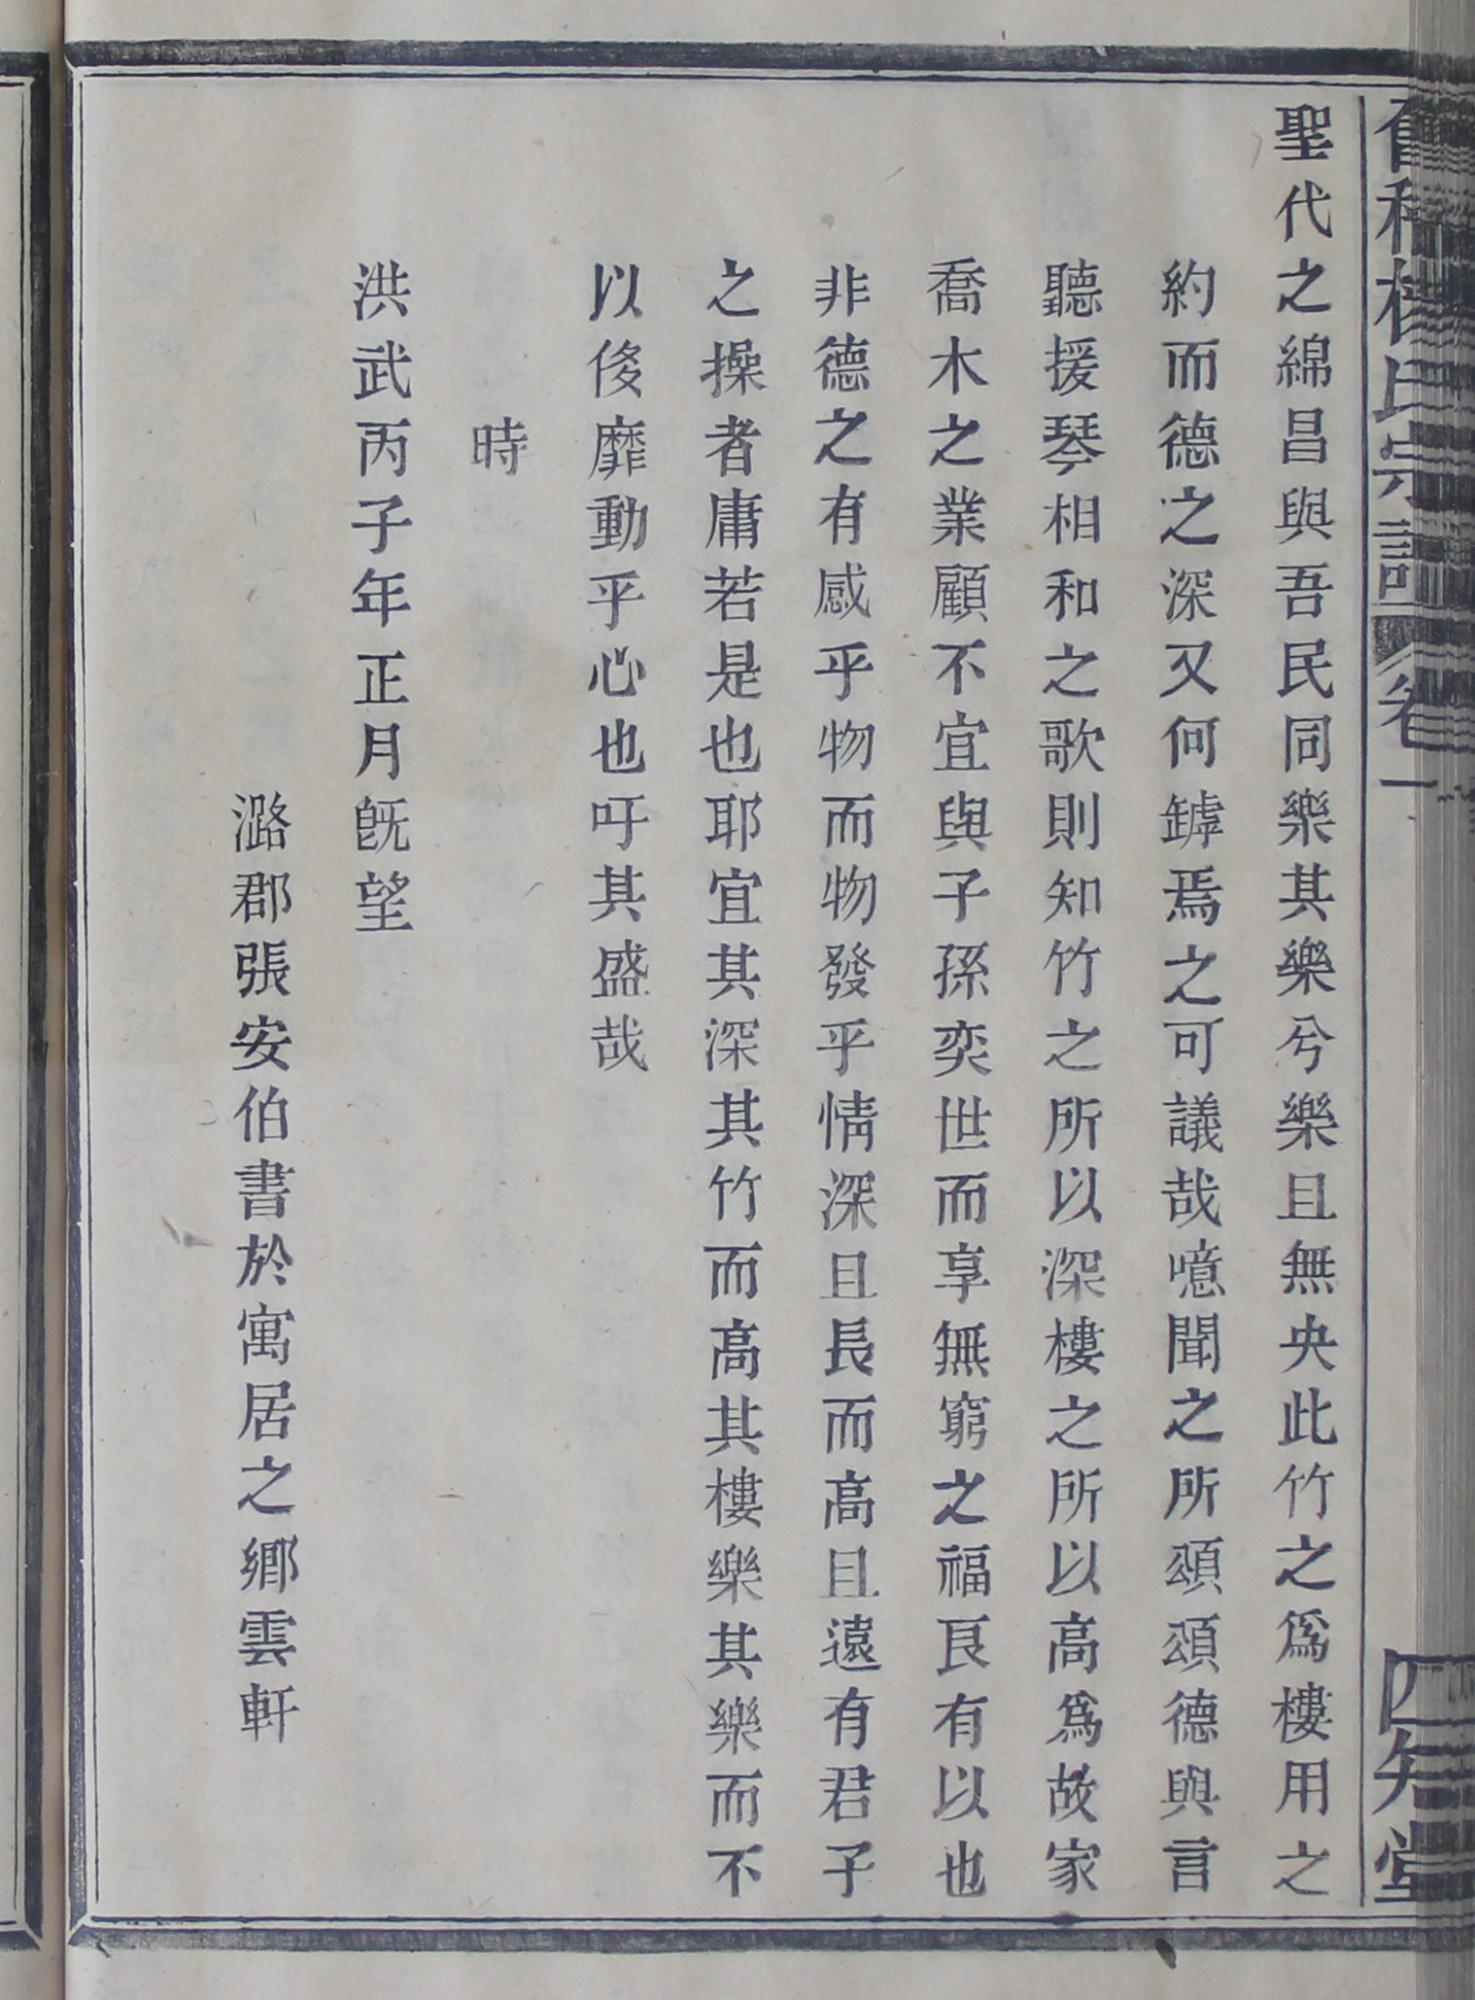 氏宗譜 卷一 四知堂
聖代之綿昌與吾民同樂其樂兮樂且無央此竹之爲樓用之
約而德之深又何罅焉之可議哉噫聞之所頌頌德與言
聽援琴相和之歌則知竹之所以深樓之所以高爲故家
喬木之業顧不宜與子孫奕世而享無窮之福良有以也
非德之有感乎物而物發乎情深且長而高且遠有君子
之操者庸若是也耶宜其深其竹而高其樓樂其樂而不
以靡動乎心也吁其盛哉
時
洪武丙子年正月旣望
潞郡張安伯書於寓居之鄉雲軒